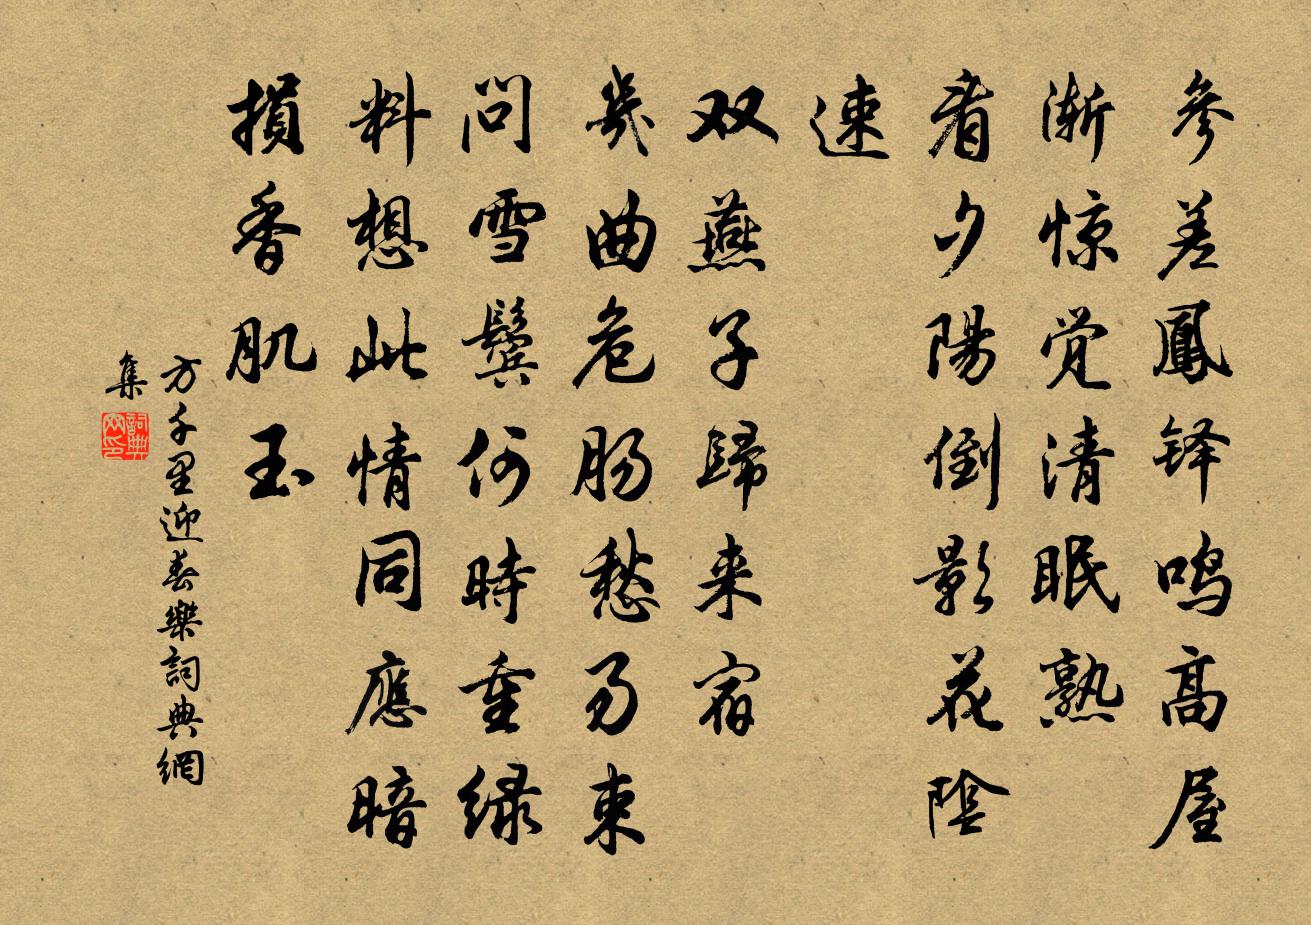 参差鳳铎鸣高屋
渐惊觉清眠熟
看夕陽倒影花陰
速
双燕子歸来宿
幾曲危肠愁易束
问雪鬓何時重绿
料想此情同應暗
損香肌玉
方千里迎春樂詞典網
集
詞典网印